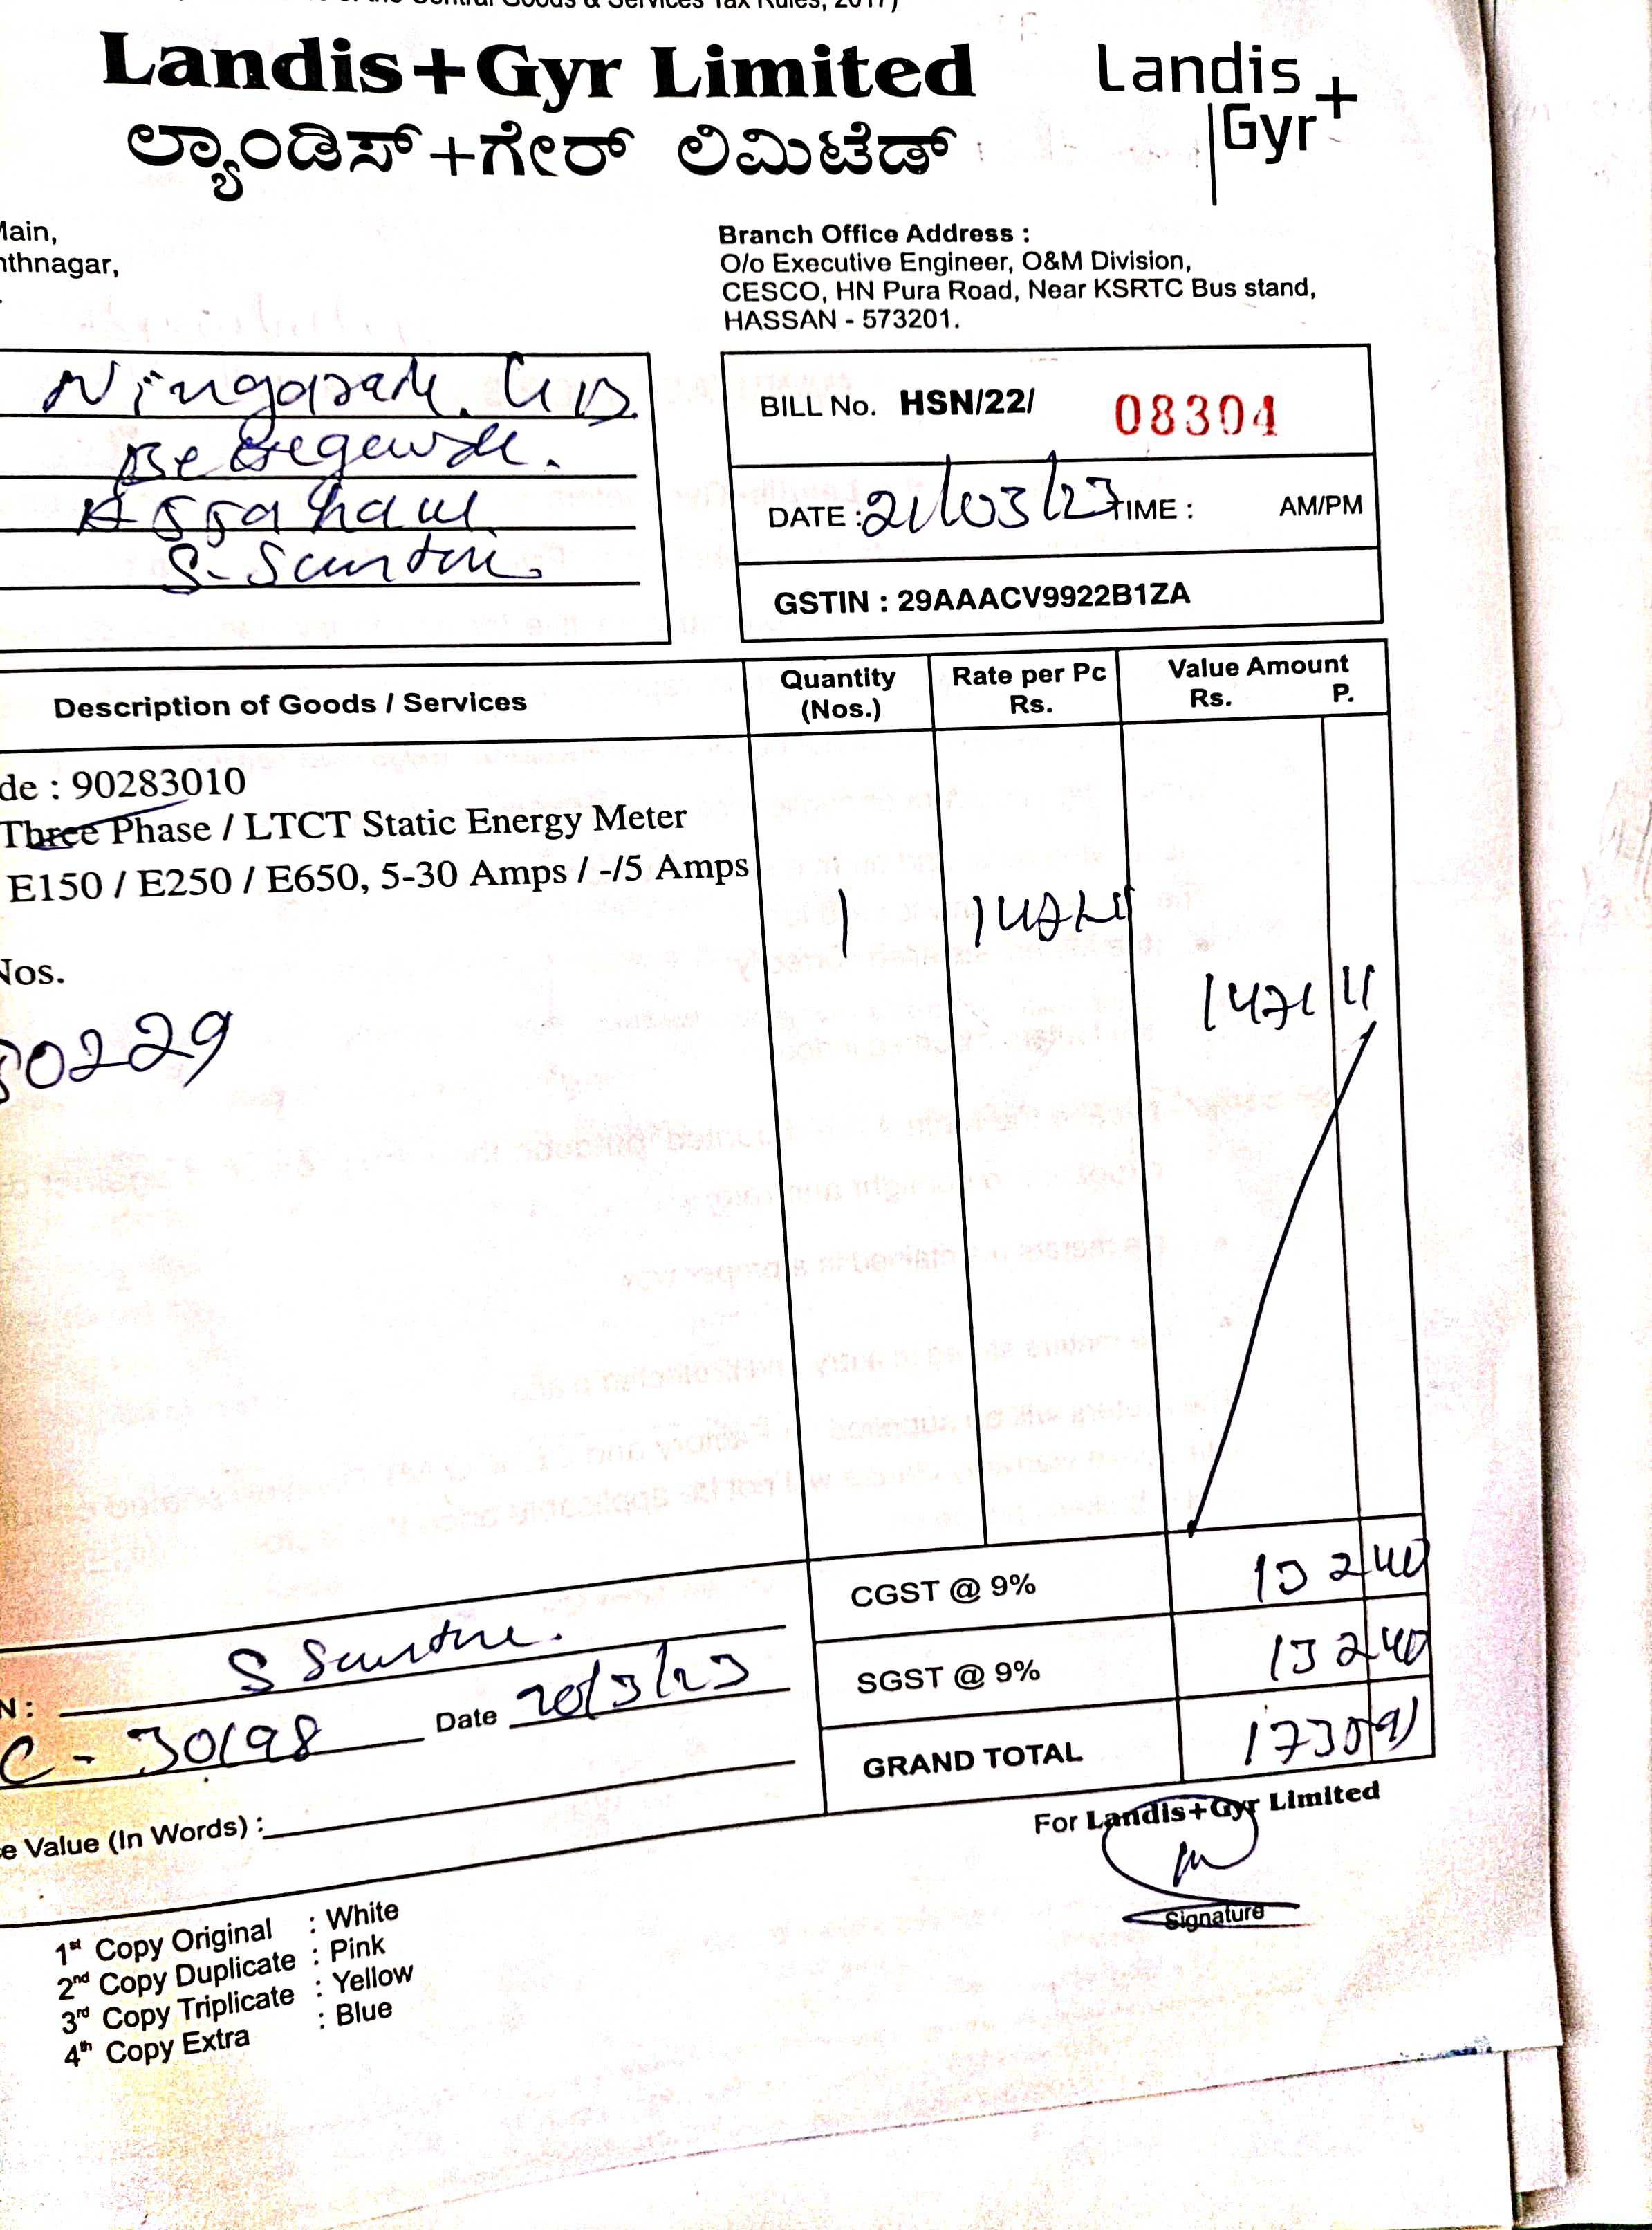 the Central Goods & Services Tax Rules, 2017)
Landis+Gyr Limited
ಲ್ಯಾಂಡಿಸ್+ಗೇರ್ ಲಿಮಿಟೆಡ್
Landis
Gyr+
Main,
nthnagar,
Branch Office Address :
O/o Executive Engineer, O&M Division,
CESCO, HN Pura Road, Near KSRTC Bus stand,
HASSAN - 573201.
BILL No. HSN/22/ 08304
DATE : 21/03/23 TIME : AM/PM
GSTIN : 29AAACV9922B1ZA
Description of Goods / Services
Quantity (Nos.)
Rate per Pc Rs.
Value Amount Rs. P.
de : 90283010
Three Phase / LTCT Static Energy Meter
E150 / E250 / E650, 5-30 Amps / -/5 Amps
1
1471 11
Nos.
80229
CGST @ 9% 132 40
SGST @ 9% 132 40
GRAND TOTAL
N :
C - 30198 Date 20/3/23
e Value (In Words) :
For Landis+Gyr Limited
Signature
1st Copy Original : White
2nd Copy Duplicate : Pink
3rd Copy Triplicate : Yellow
4th Copy Extra : Blue